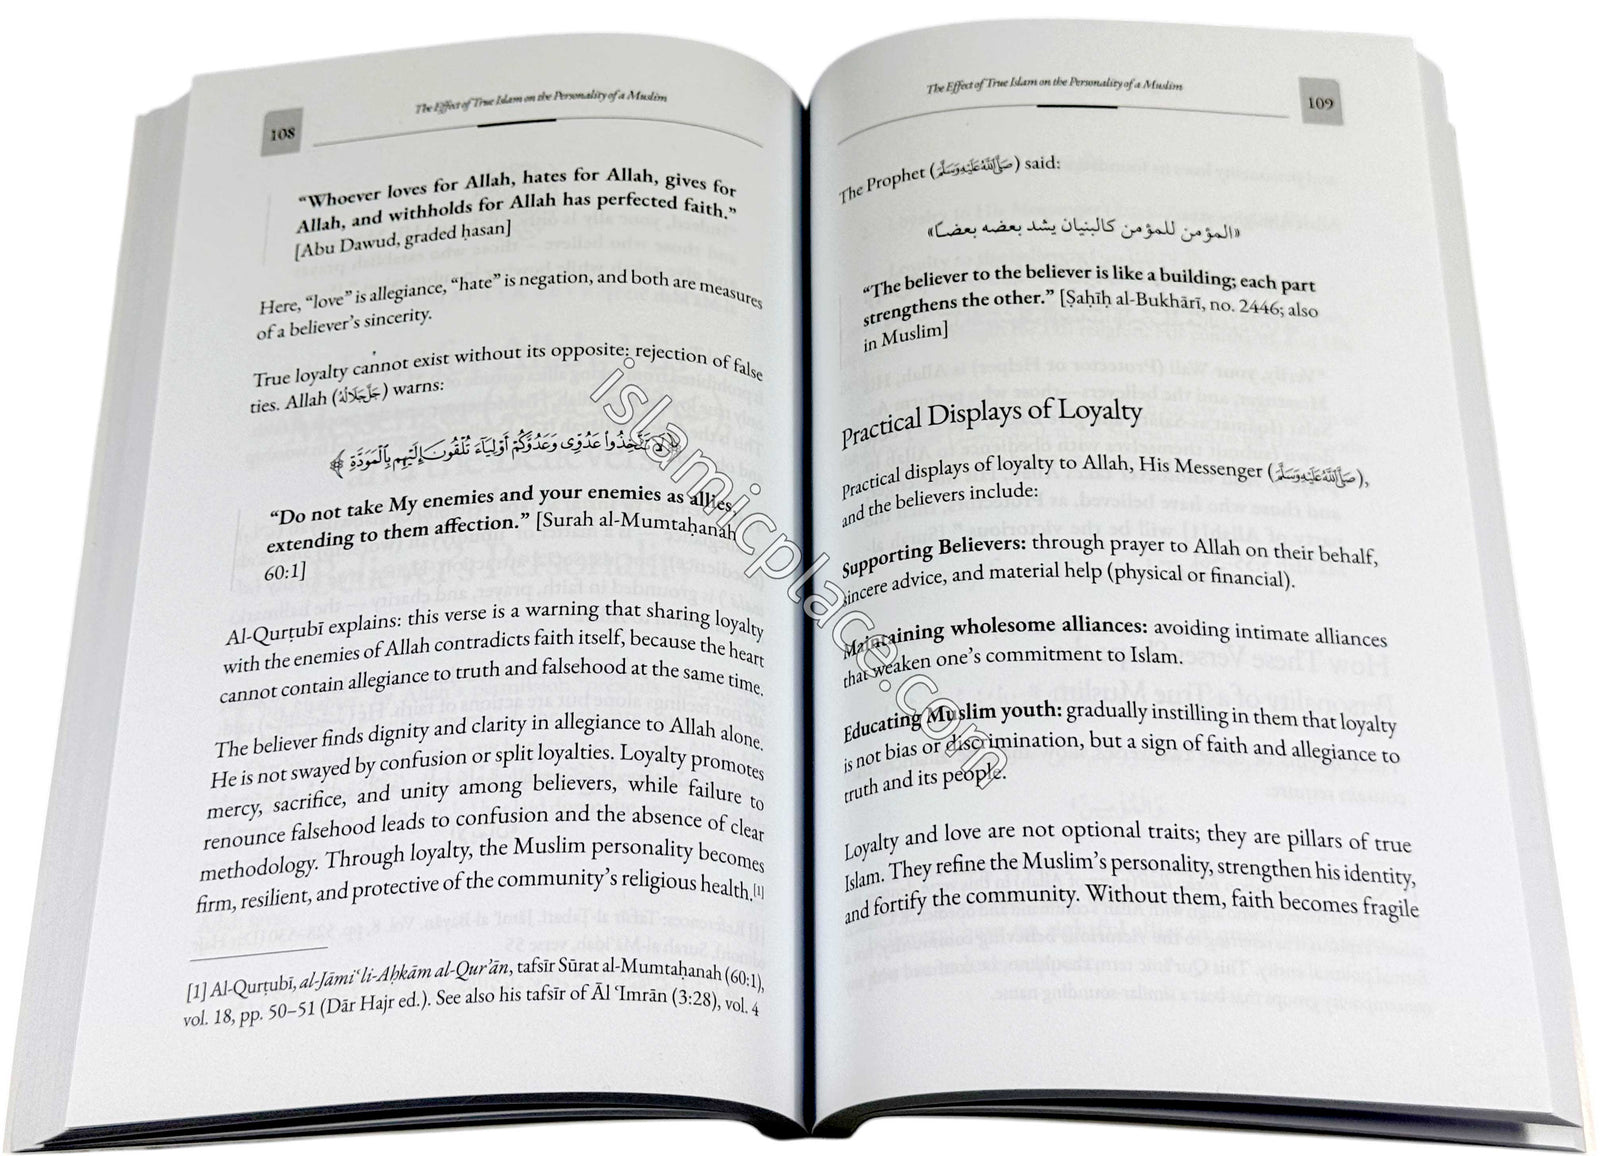 108
The Effect of True Islam on the Personality of a Muslim
“Whoever loves for Allah, hates for Allah, gives for
Allah, and withholds for Allah has perfected faith.”
[Abu Dawud, graded ḥasan]
Here, “love” is allegiance, “hate” is negation, and both are measures
of a believer’s sincerity.
True loyalty cannot exist without its opposite: rejection of false
ties. Allah (جَلَّجَلَالُهُ) warns:
﴿لَا تَتَّخِذُوا۟ عَدُوِّى وَعَدُوَّكُمْ أَوْلِيَآءَ تُلْقُونَ إِلَيْهِم بِٱلْمَوَدَّةِ ﴾
“Do not take My enemies and your enemies as allies,
extending to them affection.” [Surah al-Mumtaḥanah
60:1]
Al-Qurṭubī explains: this verse is a warning that sharing loyalty
with the enemies of Allah contradicts faith itself, because the heart
cannot contain allegiance to truth and falsehood at the same time.
The believer finds dignity and clarity in allegiance to Allah alone.
He is not swayed by confusion or split loyalties. Loyalty promotes
mercy, sacrifice, and unity among believers, while failure to
renounce falsehood leads to confusion and the absence of clear
methodology. Through loyalty, the Muslim personality becomes
firm, resilient, and protective of the community’s religious health.[1]
[1] Al-Qurṭubī, al-Jāmiʿ li-Aḥkām al-Qur’ān, tafsīr Sūrat al-Mumtaḥanah (60:1),
vol. 18, pp. 50–51 (Dār Hajr ed.). See also his tafsīr of Āl ʿImrān (3:28), vol. 4
The Effect of True Islam on the Personality of a Muslim
109
The Prophet (صَلَّى اللَّهُ عَلَيْهِ وَسَلَّمَ) said:
«المؤمن للمؤمن كالبنيان يشد بعضه بعضًا»
“The believer to the believer is like a building; each part
strengthens the other.” [Ṣaḥīḥ al-Bukhārī, no. 2446; also
in Muslim]
Practical Displays of Loyalty
Practical displays of loyalty to Allah, His Messenger (صَلَّى اللَّهُ عَلَيْهِ وَسَلَّمَ),
and the believers include:
Supporting Believers: through prayer to Allah on their behalf,
sincere advice, and material help (physical or financial).
Maintaining wholesome alliances: avoiding intimate alliances
that weaken one’s commitment to Islam.
Educating Muslim youth: gradually instilling in them that loyalty
is not bias or discrimination, but a sign of faith and allegiance to
truth and its people.
Loyalty and love are not optional traits; they are pillars of true
Islam. They refine the Muslim’s personality, strengthen his identity,
and fortify the community. Without them, faith becomes fragile
islamicplace.com